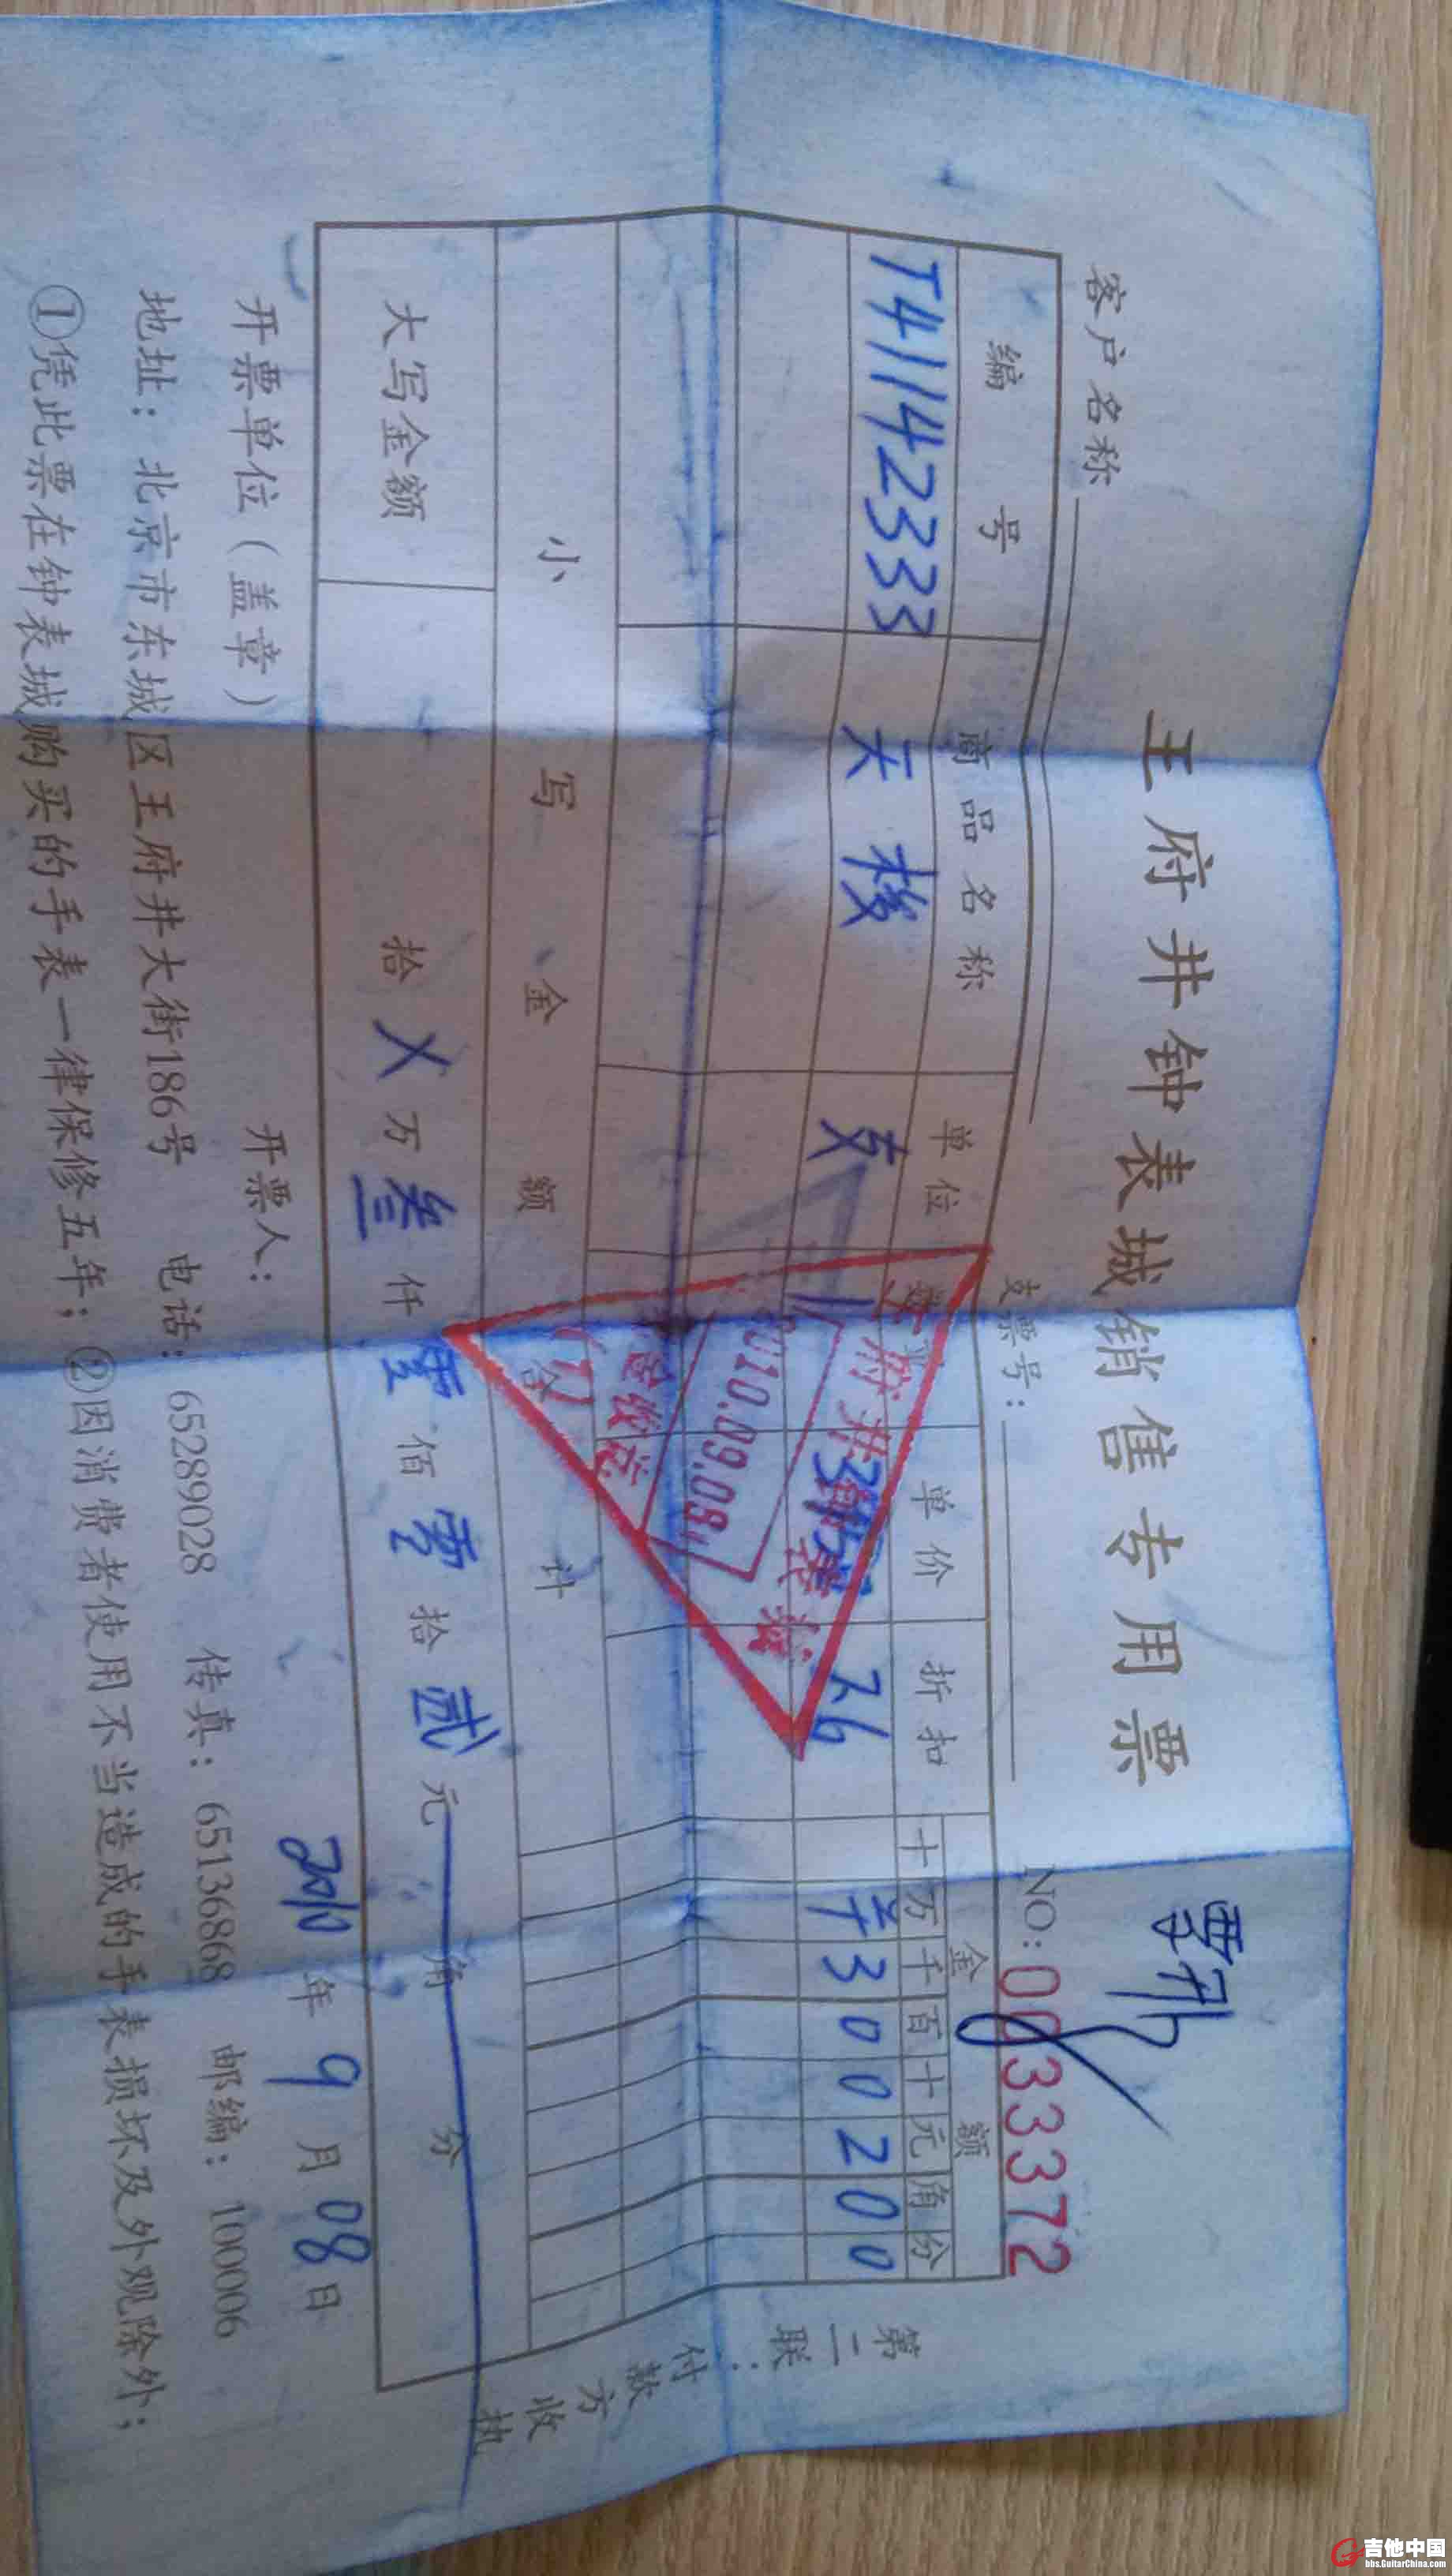 王府井钟表城销售专用票
NO:0033372
客户名称
支票号:
编号 商品名称 单位 单价 折扣 金额
十万千百十元角分
T41142333 支 300200
2010.09.09
小写金额 合计
大写金额 拾 X 万 叁 仟 零 佰 零 拾 贰 元 角 分
开票单位(盖章) 开票人: 2010 年 9 月 08 日
地址: 北京市东城区王府井大街186号 电话: 65289028 传真: 65136868 邮编: 100006
①凭此票在钟表城购买的手表一律保修五年; ②因消费者使用不当造成的手表损坏及外观除外;
第二联: 付款方收执
吉他中国
bbs.GuitarChina.com